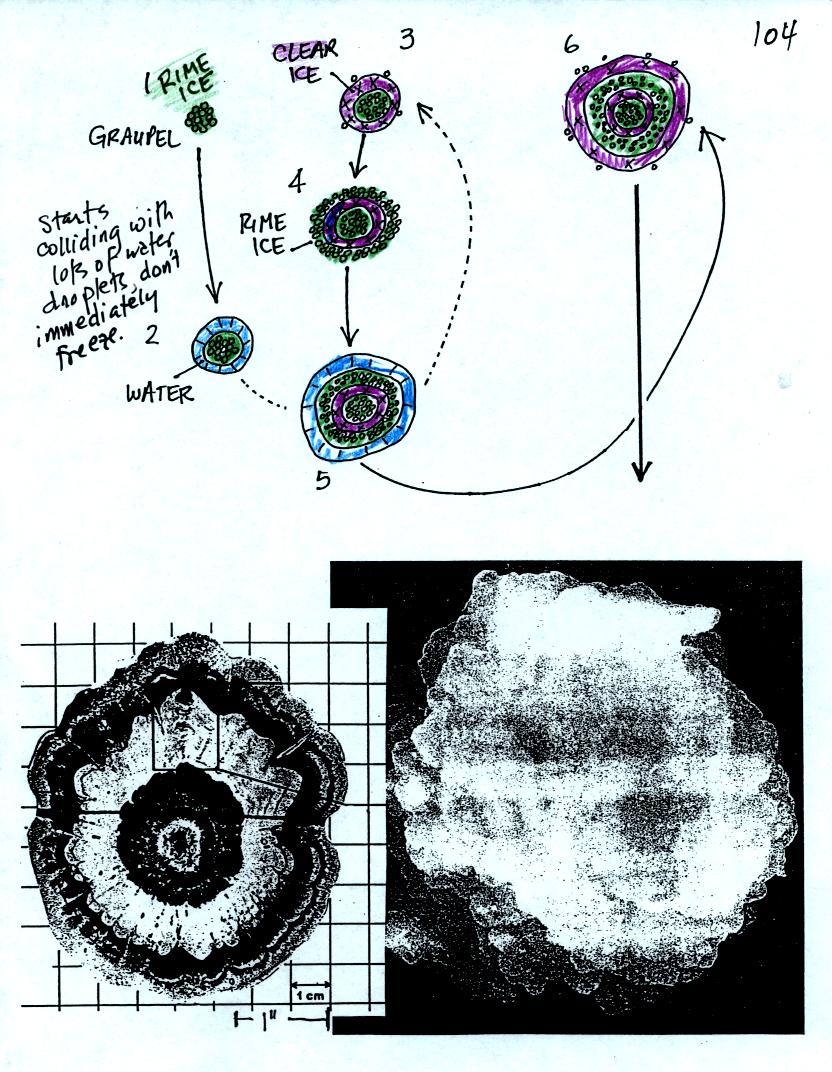 104
1 RIME
ICE
GRAUPEL
Starts
colliding with
lots of water
droplets, don't
immediately
freeze.
2
WATER
CLEAR
ICE
3
4
RIME
ICE
5
6
1 cm
1"